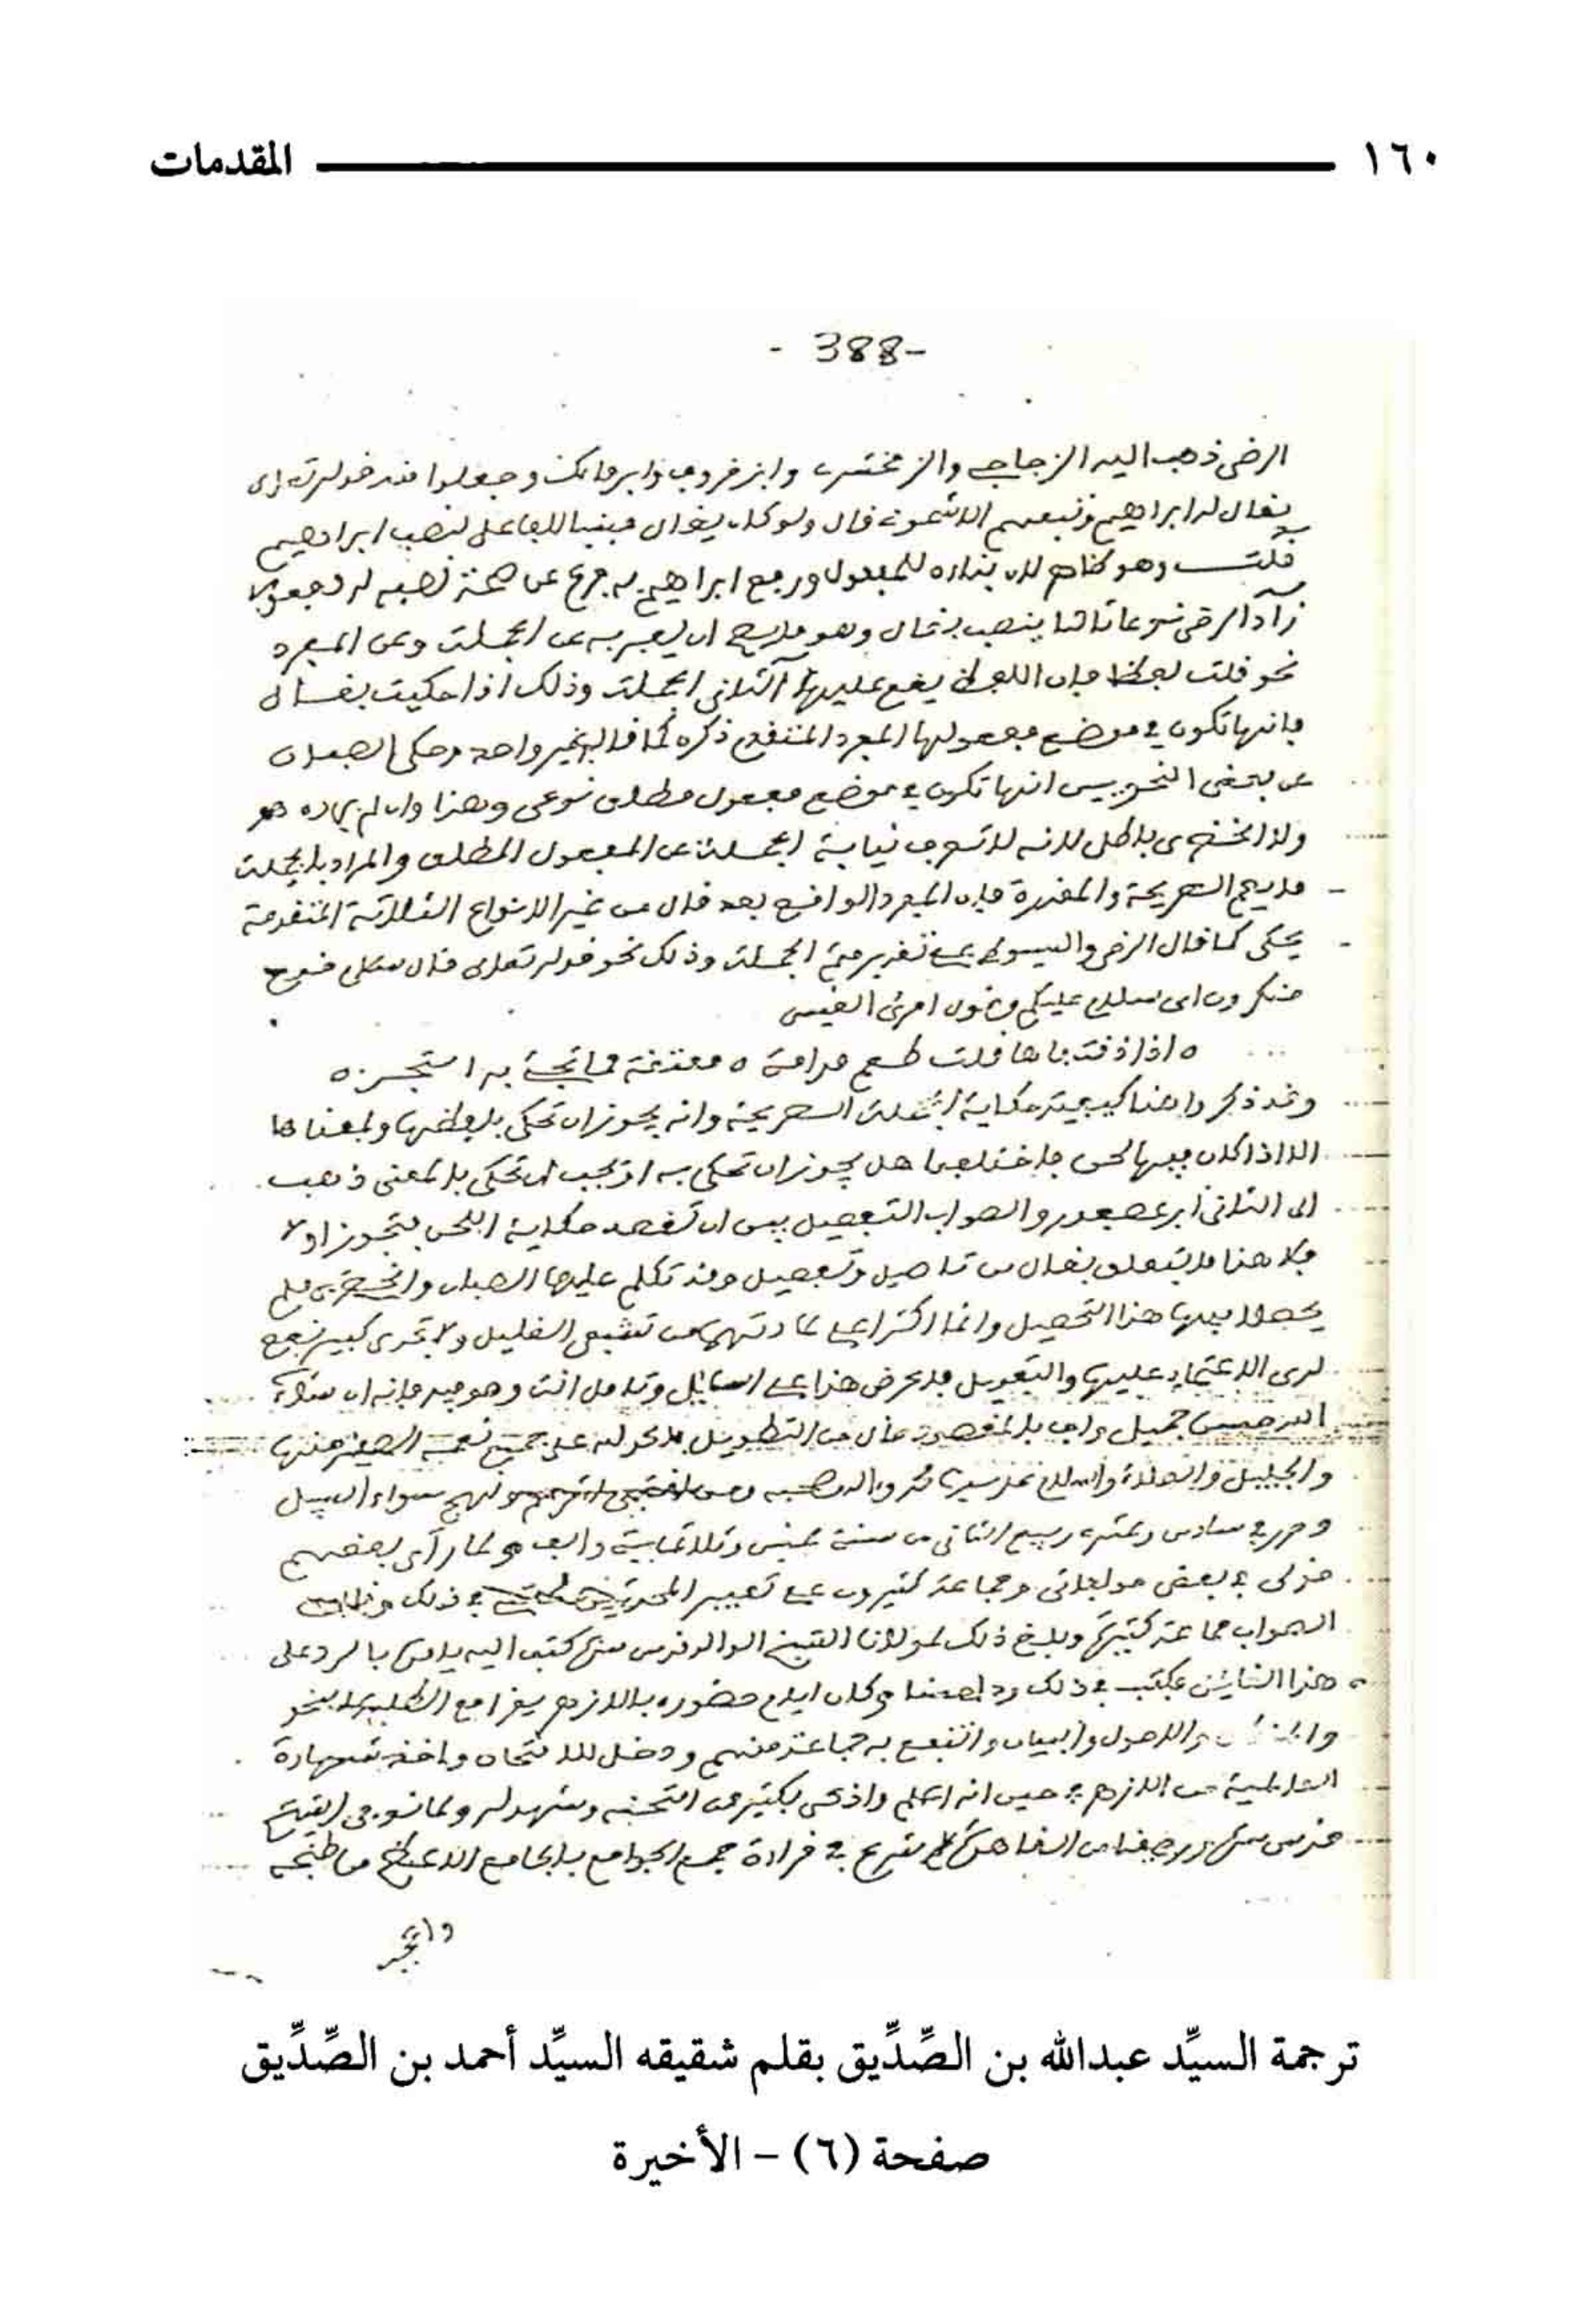 ١٦٠ المقدمات
- 388 -
الرضى ذهب اليه الزجاجي والزمخشرى وابن خروف وابن مالك وجعلوا منه قوله تعالى
يقال له ابراهيم وتبعهم الاشمونى قال ولو كان يقول مبنيا للفاعل لنصب ابراهيم
قلت وهو كلام لان بناءه للمفعول ورفع ابراهيم به فرع عن صحة نصبه
زاد الرضى نوعا ثالثا ينصب بقال وهو ما يصح ان يعبر به عن الجملة وعن المفرد
نحو قلت لفظا فان اللفظ يقع عليهما الثانى الجملة وذلك اذا حكيت بقال
فانها تكون في موضع مفعولها المفرد المتقدم ذكره كما قاله غير واحد وحكى الصبان
عن بعض النحويين انها تكون في موضع مفعول مطلق نوعى وهذا وان لم
باطل لانه لا تعرف نيابة الجملة عن المفعول المطلق والمراد بالجملة
ما يعم الصريحة والمقدرة فان المفرد الواقع بعد قال من غير الانواع الثلاثة المتقدمة
يحكى كما قال الرضى والسيوطى على تقدير متمم الجملة وذلك نحو قوله تعالى قال سلام قوم
منكرون اى سلام عليكم وقول امرئ القيس
ه اذا ذقت فاها قلت طعم مدامة ه معتقة مما تجىء به التجر ه
وقد ذكروا هنا كيفية حكاية الجملة الصريحة وانه يجوز ان تحكى بلفظها وبمعناها
الا اذا كان فيها لحن فاختلفوا هل يجوز ان تحكى به او يجب ان تحكى بالمعنى ذهب
الى الثانى ابن عصفور والصواب التفصيل بين ان تقصد حكاية اللحن فتجوز او لا
فلا هنا ما يتعلق بقال من تأصيل وتفصيل وقد تكلم عليها الصبان والخضرى فلم
يحصلا فيها هذا التحصيل وانما اكثرا على عادتهما من تشقيق القليل ولا تجدى كبير نفع
لدى الاعتماد عليها والتعويل فاعرض هذا على السائل وتأمل انت وهو فيه فانه ان شاء
الله حسن جميل واف بالمقصود خال من التطويل فالحمد لله على جميع نعمه الصغير منها
والجليل والصلاة والسلام على سيدنا محمد وآله وصحبه ونهج سواء السبيل
وحرر في سادس وعشرى ربيع الثانى من سنة خمسين وثلاثمائة والف ولما رأى بعضهم
عزلى في بعض مؤلفاتى وجماعة كثيرون على تعبير في ذلك
الصواب جماعة كثيرة وبلغ ذلك لمولانا الشيخ الوالد قدس سره كتب اليه يامره بالرد على
هذا فكتب في ذلك ردا وكان ايام حضوره بالازهر يقرأ مع الطلبة النحو
والاصول والبيان وانتفع به جماعة منهم ودخل للامتحان واخذ شهادة
العالمية من الازهر حين انه اعلم واذكى بكثير من وشهد له ولما توفى الشيخ
قدس سره ورجعنا من القاهرة شرع في قراءة جمع الجوامع بالجامع الاعظم من طنجة
ترجمة السيِّد عبدالله بن الصِّدِّيق بقلم شقيقه السيِّد أحمد بن الصِّدِّيق
صفحة (٦) – الأخيرة